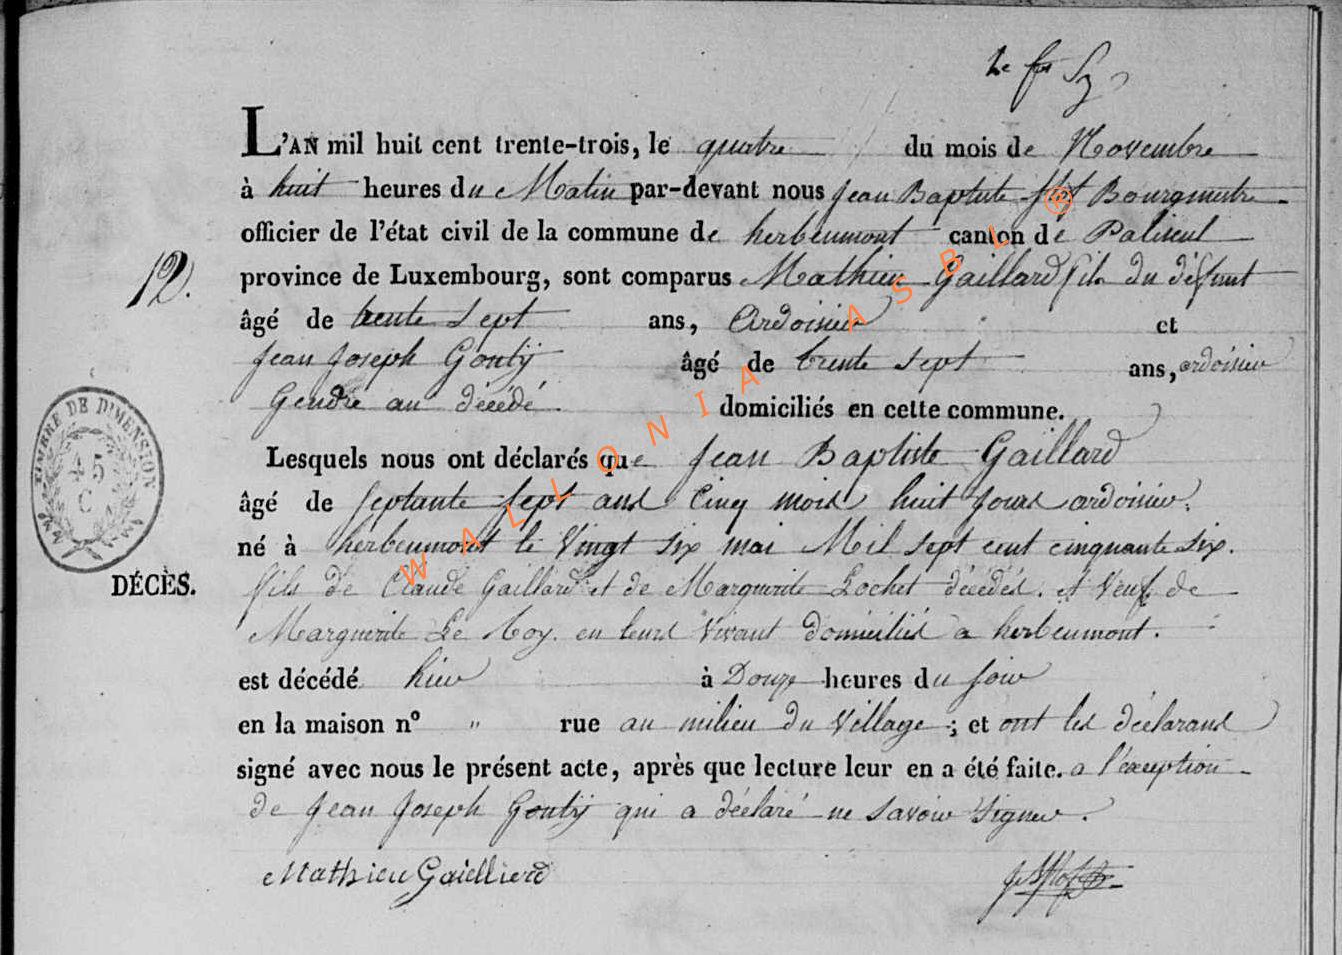 L'AN mil huit cent trente-trois, le quatre du mois de Novembre
à huit heures du Matin par-devant nous Jean Baptiste Bourgmestre
officier de l'état civil de la commune de herbeumont canton de Paliseul
12.
province de Luxembourg, sont comparus Mathieu Gaillard fils du défunt
âgé de trente sept ans, Ardoisier et
Jean Joseph Gontij âgé de trente sept ans, ardoisier
Gendre au décédé domiciliés en cette commune.
TIMBRE DE DIMENSION
45
C
Lesquels nous ont déclarés que Jean Baptiste Gaillard
âgé de septante sept ans Cinq mois huit jours ardoisier.
né à herbeumont le Vingt six mai Mil sept cent cinquante six.
DÉCÈS.
fils de Claude Gaillard et de Marguerite Lochet décédés. et Veuf de
Marguerite Le Roy. en leurs Vivant domiciliés a herbeumont.
est décédé hier à Douze heures du soir
en la maison nº " rue au milieu du Village ; et ont les déclarans
signé avec nous le présent acte, après que lecture leur en a été faite. a l'éxeption
de Jean Joseph Gontij qui a déclaré ne savoir Signer.
Mathieu Gaielliard
WALLONIA ASBL